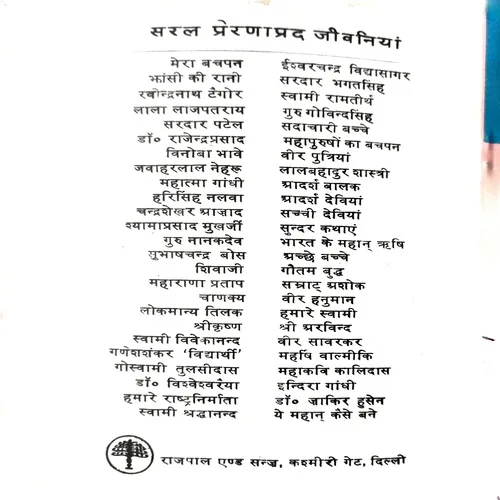 सरल प्रेरणाप्रद जीवनियां
मेरा बचपन
झांसी की रानी
रवीन्द्रनाथ टैगोर
लाला लाजपतराय
सरदार पटेल
डॉ० राजेन्द्रप्रसाद
विनोबा भावे
जवाहरलाल नेहरू
महात्मा गांधी
हरिसिंह नलवा
चन्द्रशेखर आज़ाद
श्यामाप्रसाद मुखर्जी
गुरु नानकदेव
सुभाषचन्द्र बोस
शिवाजी
महाराणा प्रताप
चाणक्य
लोकमान्य तिलक
श्रीकृष्ण
स्वामी विवेकानन्द
गणेशशंकर 'विद्यार्थी'
गोस्वामी तुलसीदास
डॉ० विश्वेश्वरैया
हमारे राष्ट्रनिर्माता
स्वामी श्रद्धानन्द
ईश्वरचन्द्र विद्यासागर
सरदार भगतसिंह
स्वामी रामतीर्थ
गुरु गोविन्दसिंह
सदाचारी बच्चे
महापुरुषों का बचपन
वीर पुत्रियां
लालबहादुर शास्त्री
आदर्श बालक
आदर्श देवियां
सच्ची देवियां
सुन्दर कथाएं
भारत के महान् ऋषि
अच्छे बच्चे
गौतम बुद्ध
सम्राट् अशोक
वीर हनुमान
हमारे स्वामी
श्री अरविन्द
वीर सावरकर
महर्षि वाल्मीकि
महाकवि कालिदास
इन्दिरा गांधी
डॉ० ज़ाकिर हुसेन
ये महान् कैसे बने
राजपाल एण्ड सन्ज़, कश्मीरी गेट, दिल्ली